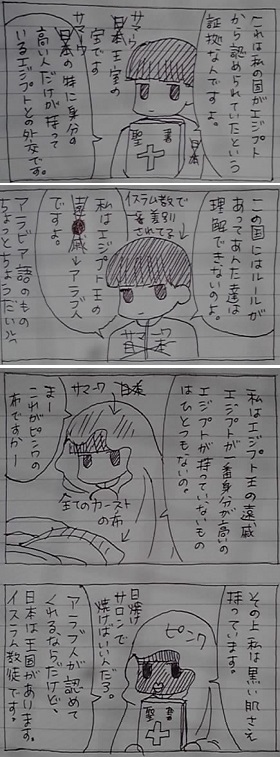 これは私の国がエジプト
から認められていたという
証拠なんですよ。
サマーワ
日本王室の
宝です
サマーワ
日本の特に身分の
高い人だけが持って
いるエジプトとの外交です。
聖書
日本
この国にはルールが
あってあんた達は
理解できないのよ。
イスラム教で
差別
されてる
私はエジプト王の
遠戚→アラブ人
ですよ。
アラビア語のもの
ちょっとちょうだい
私はエジプト王の遠戚
エジプトが一番身分が高いの
エジプトが持っていないもの
はひとつもないの。
サマーワ 日本
まー
これがピンクの
布ですかー
全てのカースト
の布
その上私は黒い肌さえ
持っています。
ピンク
日焼け
サロンで
焼けばいいんだろ。
聖書
アラブ人が認めて
くれるならだけど、
日本は王国があります。
イスラム教徒です。